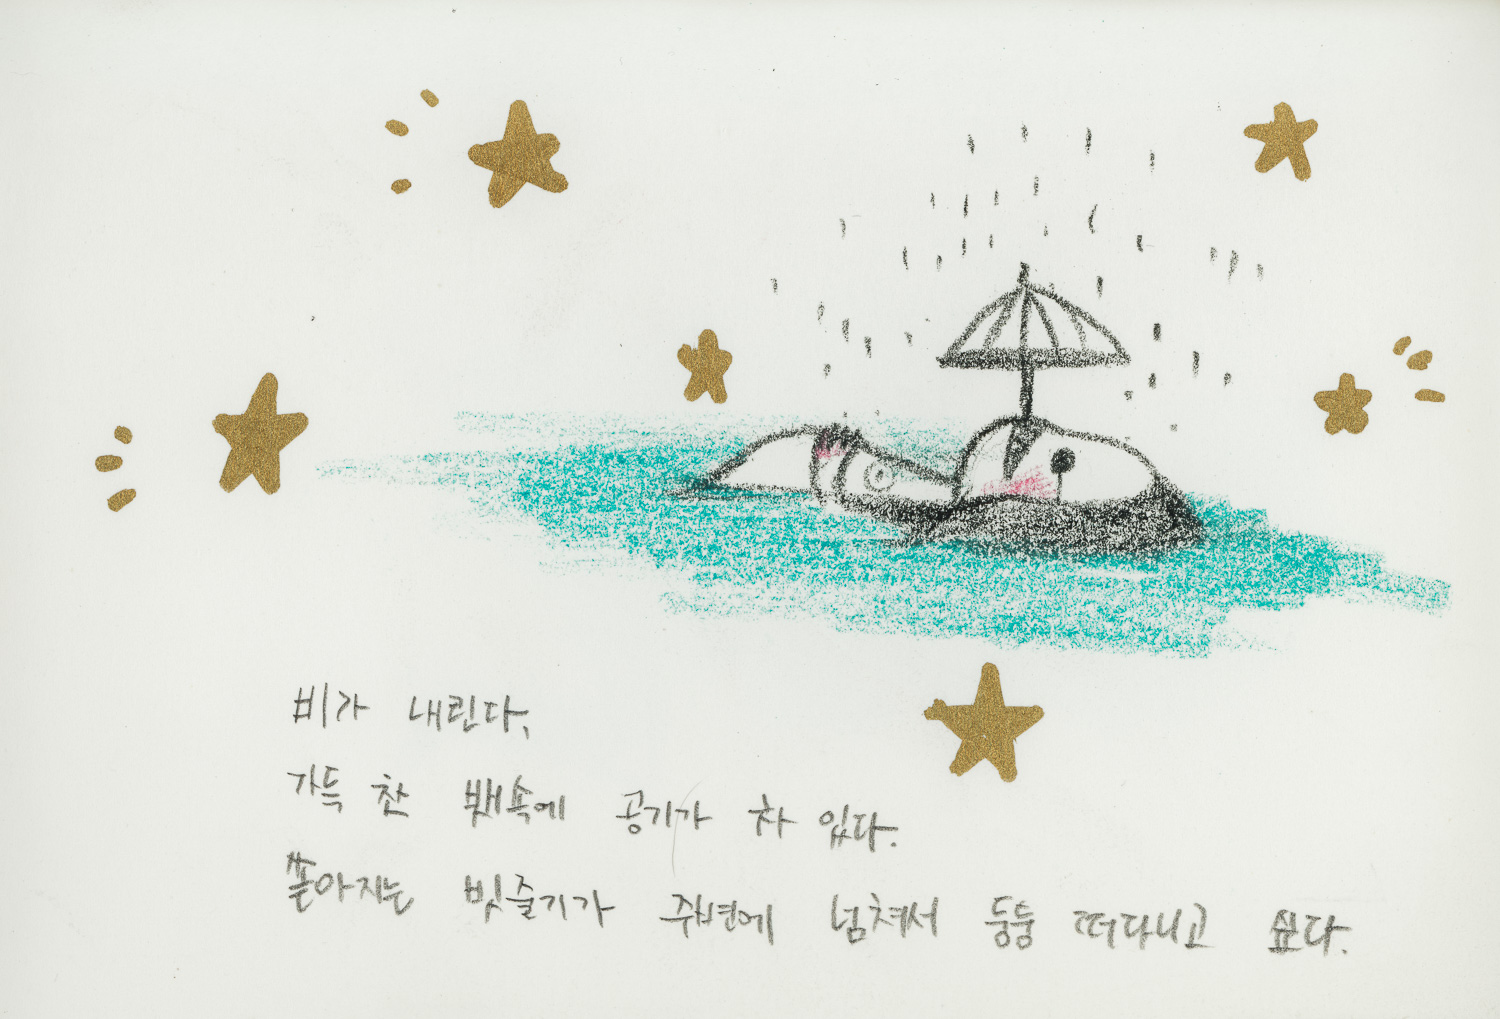 비가 내린다.
가득 찬 뱃속에 공기가 차 있다.
쏟아지는 빗줄기가 주변에 넘쳐서 둥둥 떠다니고 싶다.